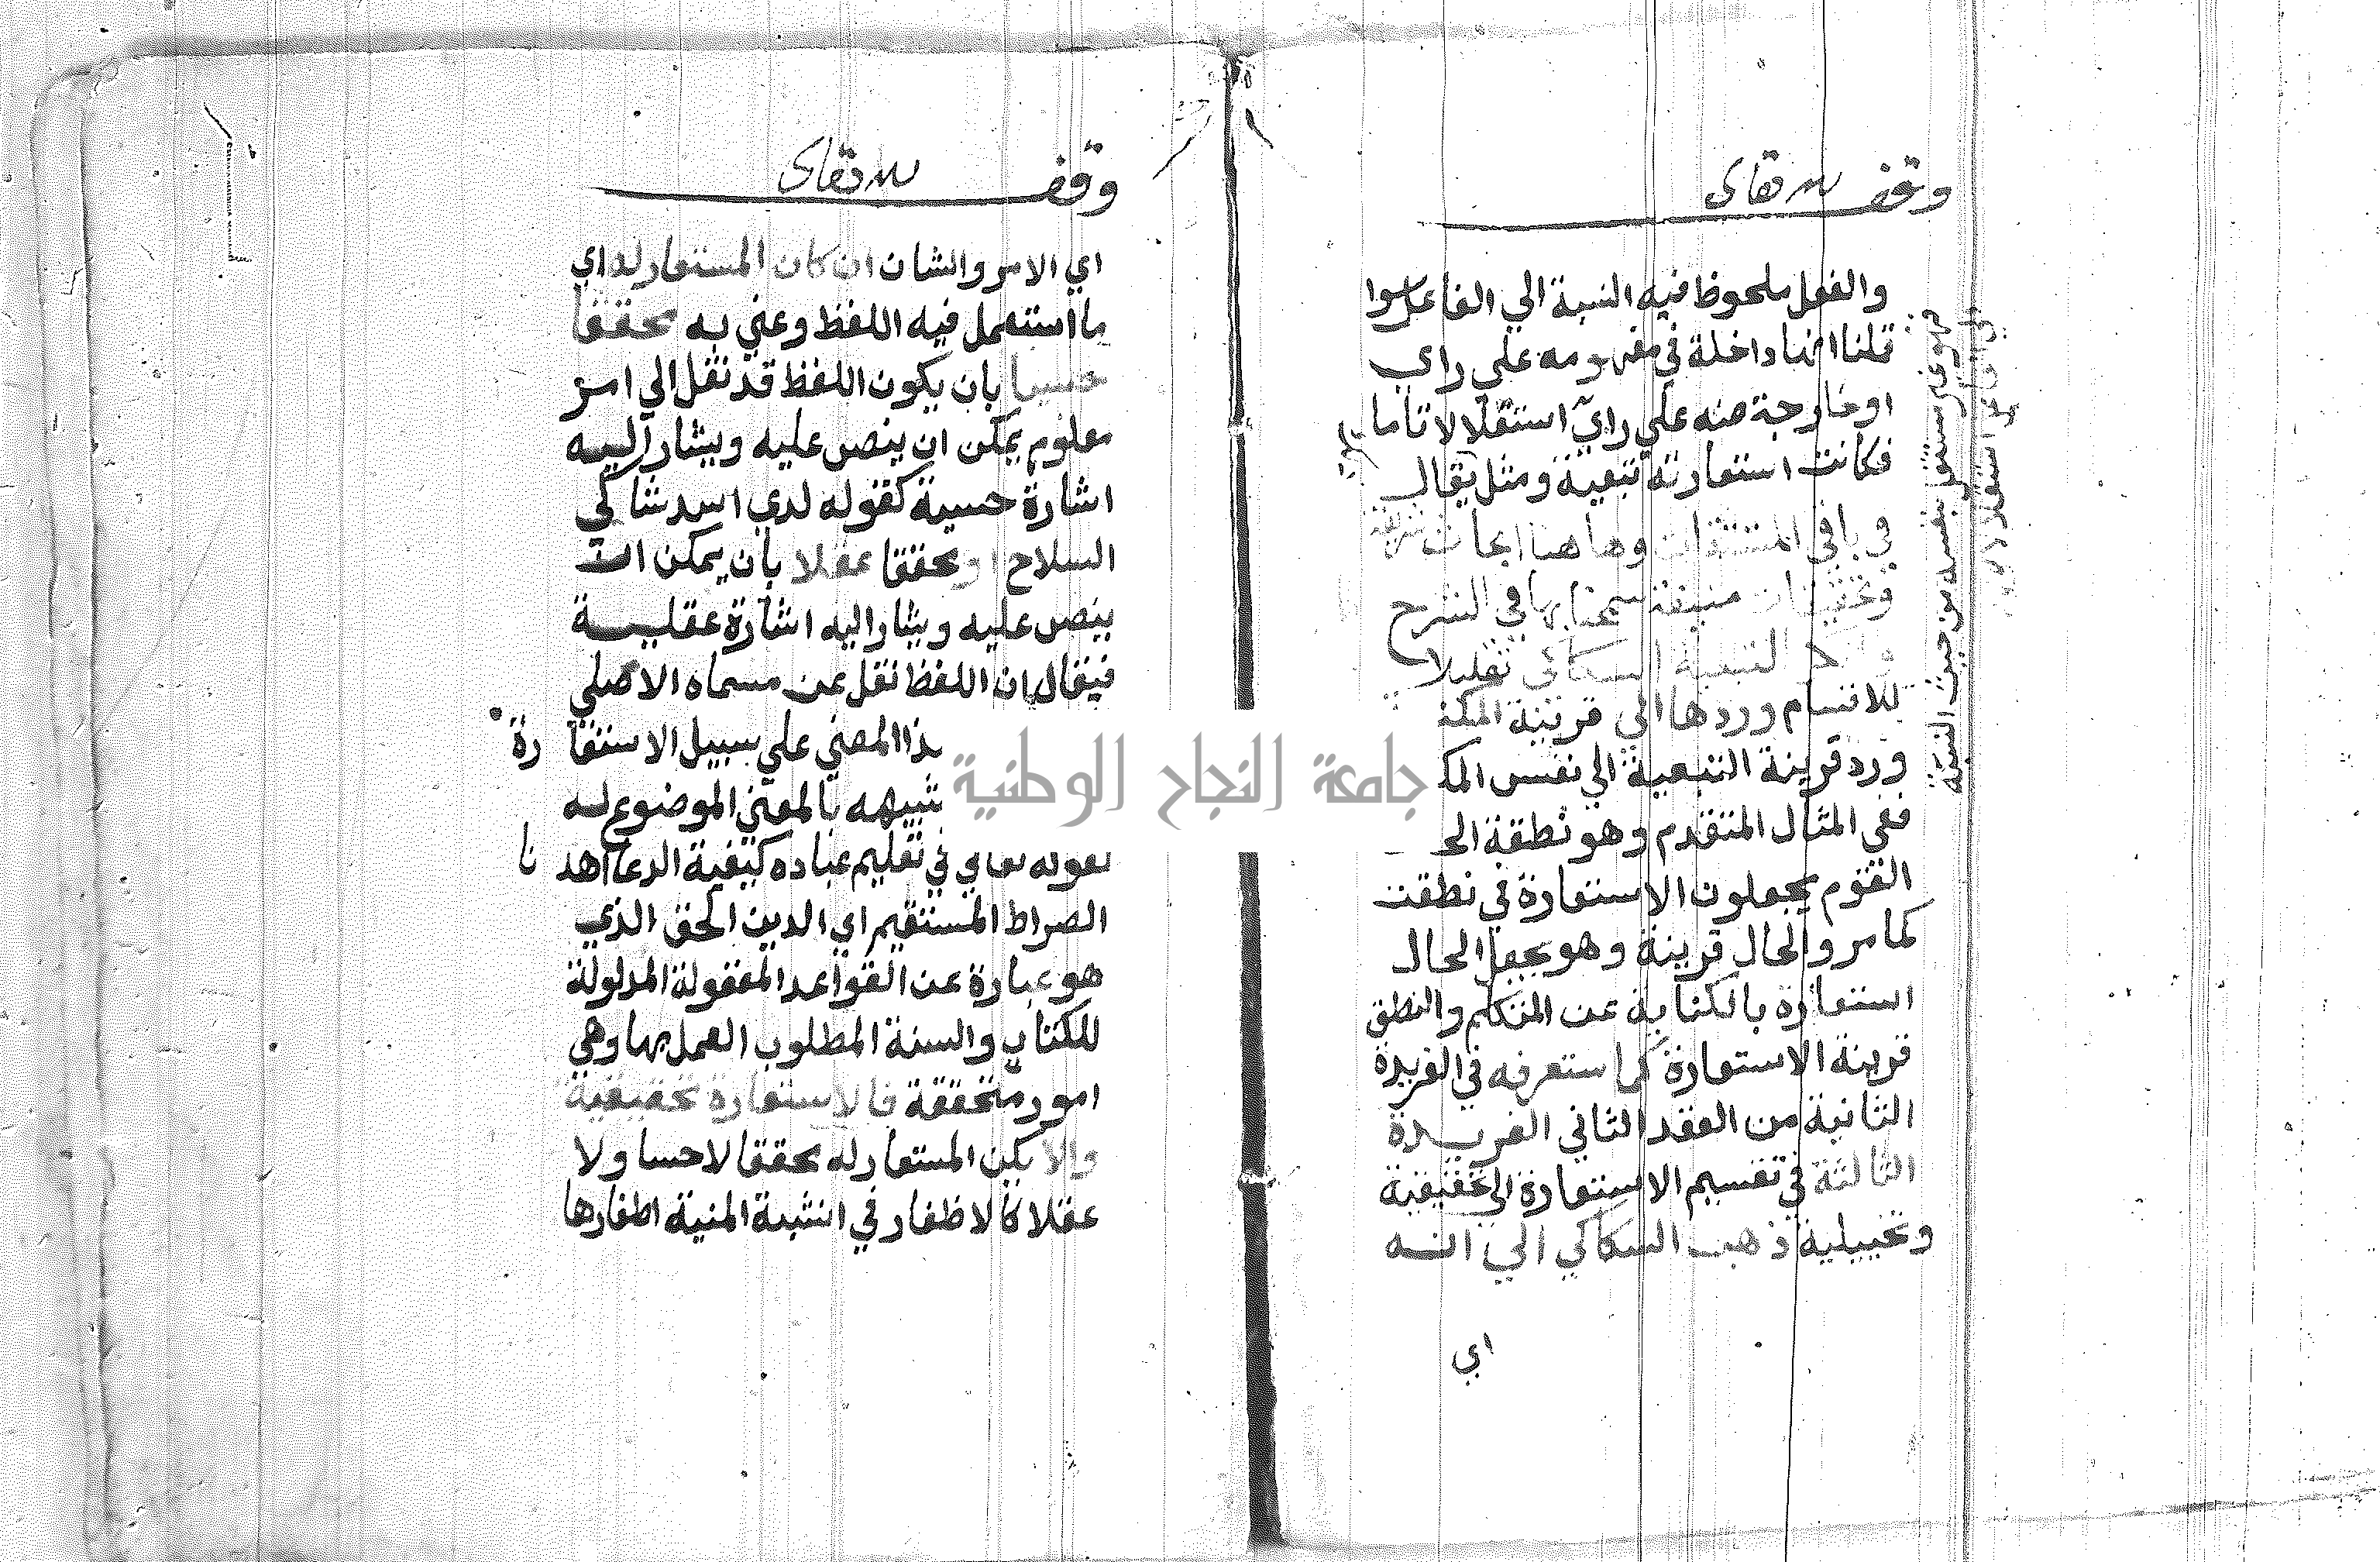 وقف لله تعالى
والفعل ملحوظ فيه النسبة الي الفاعل سوا
قلنا انها داخلة في مفهومه علي راي
او خارجة عنه علي راي استقلالا تاما
فكانت استعارته تبعية ومثل يقال
في باقي المشتقات وهاهنا ابحاث شريفة
وتحقيقات منيفة سمحنا بها في الشرح
التبعية السكاكي تقليلا
للاقسام وردها الي قرينة المكنـ
ورد قرينة التبعية الي نفس المكـ
ففي المثال المتقدم وهو نطقة الحـ
القوم يجعلون الاستعارة في نطقت
كما مر والحال قرينة وهو يجعل الحال
استعارة بالكناية عن المتكلم والنطق
قرينة الاستعارة كما ستعرفه في الفريدة
الثانية من العقد الثاني الفريدة
الثالثة في تقسيم الاستعارة الي تحقيقية
وتخييلية ذهب السكاكي الي انه
اي
وقف لله تعالى
اي الامر والشان ان كان المستعار له اي
ما استعمل فيه اللفظ وعني به محققا
حسيا بان يكون اللفظ قد نقل الي امر
معلوم يمكن ان ينص عليه ويشار اليه
اشارة حسية كقوله لدي اسد شاكي
السلاح او محققا عقلا بان يمكن ان
ينص عليه ويشار اليه اشارة عقلية
فيقال ان اللفظ نقل عن مسماه الاصلي
ـذا المعني علي سبيل الاستعارة
تشبيهه بالمعني الموضوع له
كقوله تعالي في تعليم عباده كيفية الدعا اهدنا
الصراط المستقيم اي الدين الحق الذي
هو عبارة عن القواعد المعقولة المدلولة
للكتاب والسنة المطلوب العمل بها وهي
امور متحققة فالاستعارة تحقيقية
والا يكن المستعار له محققا لا حسا ولا
عقلا كالاظفار في انشبة المنية اظفارها
جامعة النجاح الوطنية